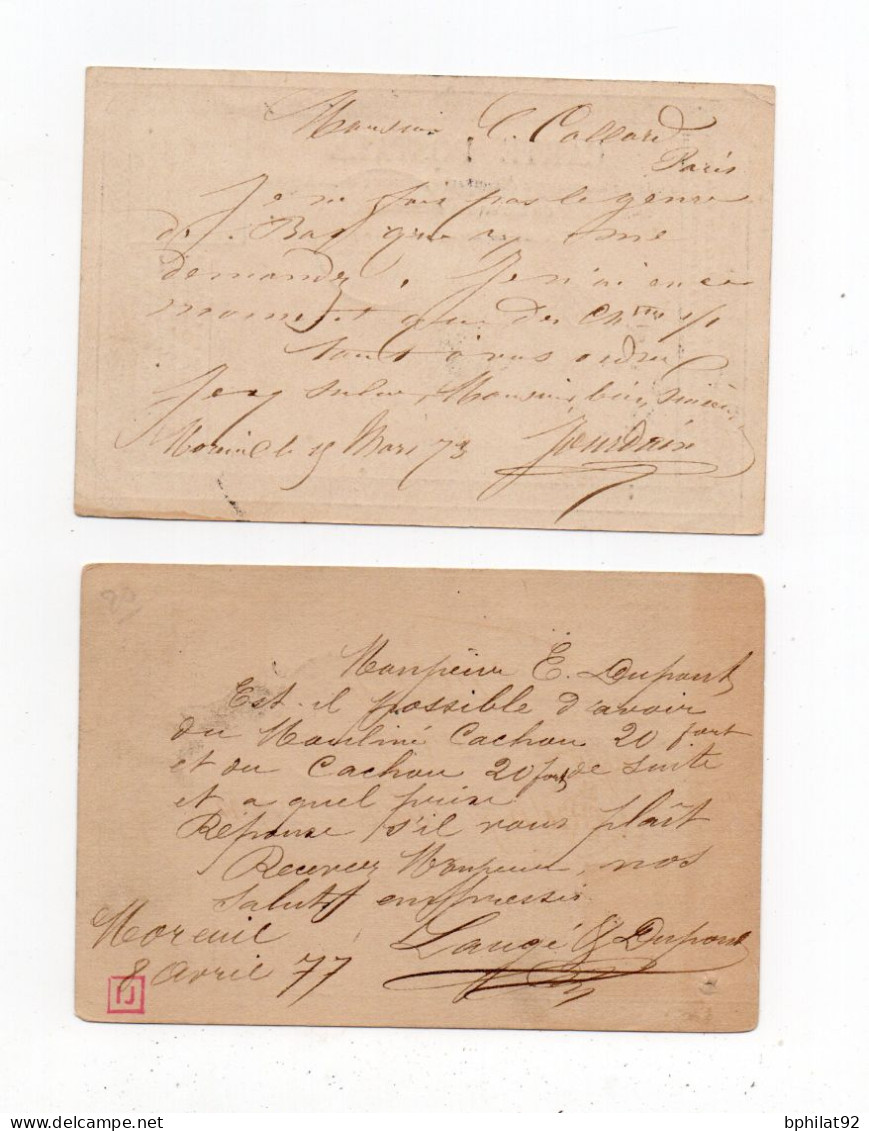 Monsieur C. Collard
Paris
Je ne fais pas le genre
de Bas que me
demandez, Je n'ai en ce
moment que des
tout à vos ordres
Monsieur, bien
Moreuil le 15 Mars 73 Jourdain
Monsieur E. Dupont
Est-il possible d'avoir
du Mouliné Cachou 20 fort
et du Cachou 20 fort de suite
et a quel prix
Réponse s'il vous plaît
Recevez Monsieur, nos
Saluts empressés
Moreuil Laugé & Dupont
8 Avril 77
delcampe.net
bphilat92